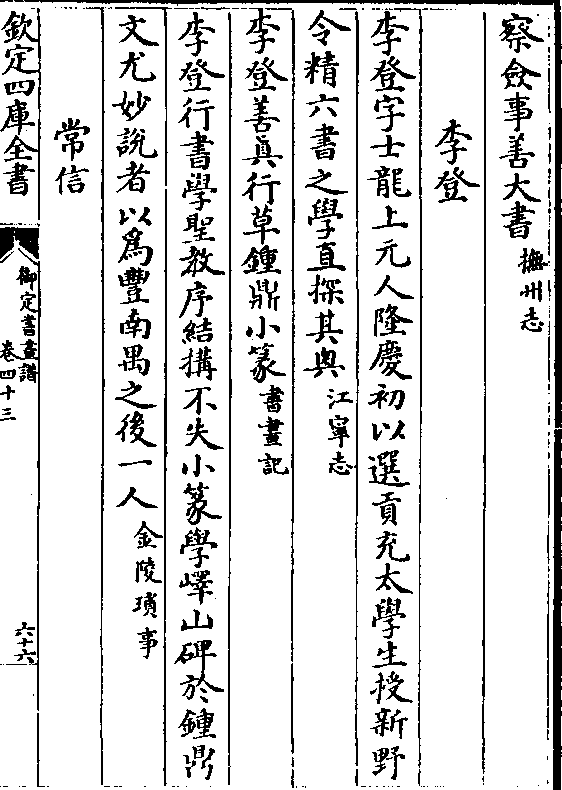 察僉事善大書撫州志
李登
李登字士龍上元人隆慶初以選貢充太學生授新野
令精六書之學直探其奥江寧志
李登善真行草鍾鼎小篆書畫記
李登行書學聖教序結搆不失小篆學嶧山碑於鍾鼎
文尤妙說者以為豐南禺之後一人金陵瑣事
常信
欽定四庫全書
御定書畫譜
卷四十三
六十六